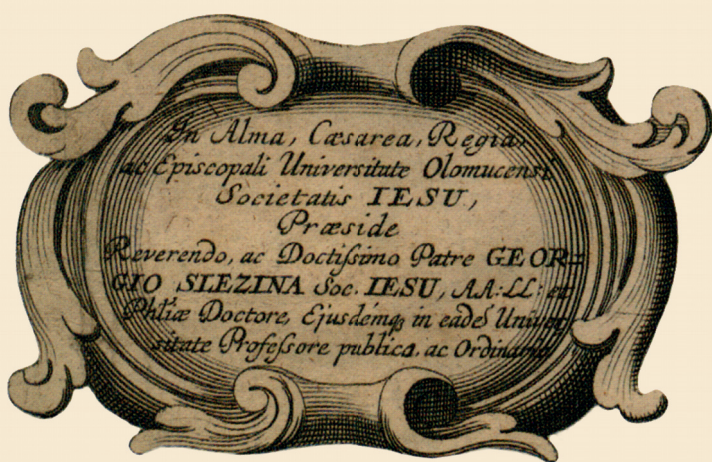 In Alma, Cæsarea, Regia,
ac Episcopali Universitate Olomucensi
Societatis IESU,
Præside
Reverendo, ac Doctiſsimo Patre GEOR=
GIO SLEZINA Soc. IESU, AA: LL: et
Phliæ Doctore, Ejusdémq; in eadē Univer
sitate Profeſsore publico. ac Ordinario